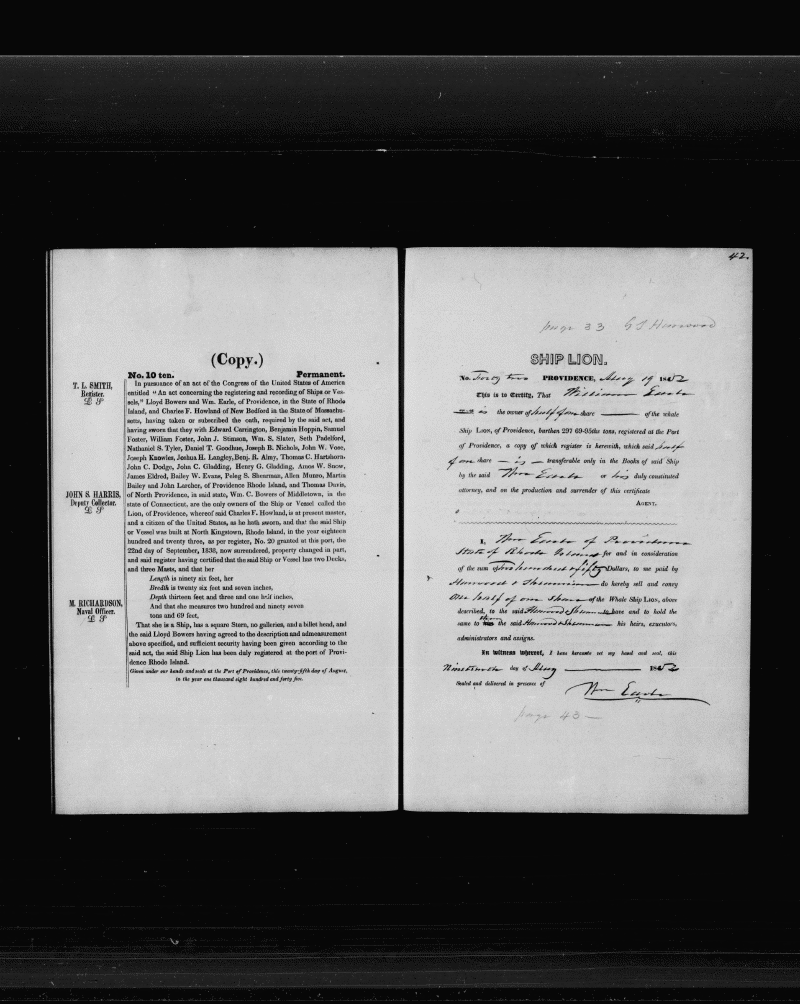 (Copy.)
No. 10 ten. Permanent.
T. L. SMITH,
Register.
L S
JOHN S. HARRIS,
Deputy Collector.
L S
M. RICHARDSON,
Naval Officer.
L S
In pursuance of an act of the Congress of the United States of America
entitled "An act concerning the registering and recording of Ships or Ves-
sels," Lloyd Bowers and Wm. Earle, of Providence, in the State of Rhode
Island, and Charles F. Howland of New Bedford in the State of Massachu-
setts, having taken or subscribed the oath, required by the said act, and
having sworn that they with Edward Carrington, Benjamin Hoppin, Samuel
Foster, William Foster, John J. Stimson, Wm. S. Slater, Seth Padelford,
Nathaniel S. Tyler, Daniel T. Goodhue, Joseph B. Nichols, John W. Vose,
Joseph Knowles, Joshua H. Langley, Benj. R. Almy, Thomas C. Hartshorn,
John C. Dodge, John C. Gladding, Henry G. Gladding, Amos W. Snow,
James Eldred, Bailey W. Evans, Peleg S. Shearman, Allen Munro, Martin
Bailey and John Larcher, of Providence Rhode Island, and Thomas Davis,
of North Providence, in said state, Wm. C. Bowers of Middletown, in the
state of Connecticut, are the only owners of the Ship or Vessel called the
Lion, of Providence, whereof said Charles F. Howland, is at present master,
and a citizen of the United States, as he hath sworn, and that the said Ship
or Vessel was built at North Kingstown, Rhode Island, in the year eighteen
hundred and twenty three, as per register, No. 20 granted at this port, the
22nd day of September, 1838, now surrendered, property changed in part,
and said register having certified that the said Ship or Vessel has two Decks,
and three Masts, and that her
Length is ninety six feet, her
Bredth is twenty six feet and seven inches,
Depth thirteen feet and three and one half inches,
And that she measures two hundred and ninety seven
tons and 69 feet,
That she is a Ship, has a square Stern, no galleries, and a billet head, and
the said Lloyd Bowers having agreed to the description and admeasurement
above specified, and sufficient security having been given according to the
said act, the said Ship Lion has been duly registered at the port of Provi-
dence Rhode Island.
Given under our hands and seals at the Port of Providence, this twenty-fifth day of August,
in the year one thousand eight hundred and forty five.
42.
page 33 Henwood
SHIP LION.
No. Forty two PROVIDENCE, Aug 19 1852
This is to Certify, That William Earle
is the owner of half of one share of the whole
Ship LION, of Providence, burthen 297 69-95ths tons, registered at the Port
of Providence, a copy of which register is herewith, which said half
of one share is transferable only in the Books of said Ship
by the said Wm Earle or his duly constituted
attorney, and on the production and surrender of this certificate
AGENT.
I, Wm Earle of Providence
State of Rhode Island for and in consideration
of the sum of two hundred & fifty Dollars, to me paid by
Henwood & do hereby sell and convey
One half of one Share of the Whole Ship LION, above
described, to the said Henwood to have and to hold the
same to the said Henwood & his heirs, executors,
administrators and assigns.
In witness whereof, I have hereunto set my hand and seal, this
Nineteenth day of Aug 1852
Sealed and delivered in presence of
Wm Earle
page 43